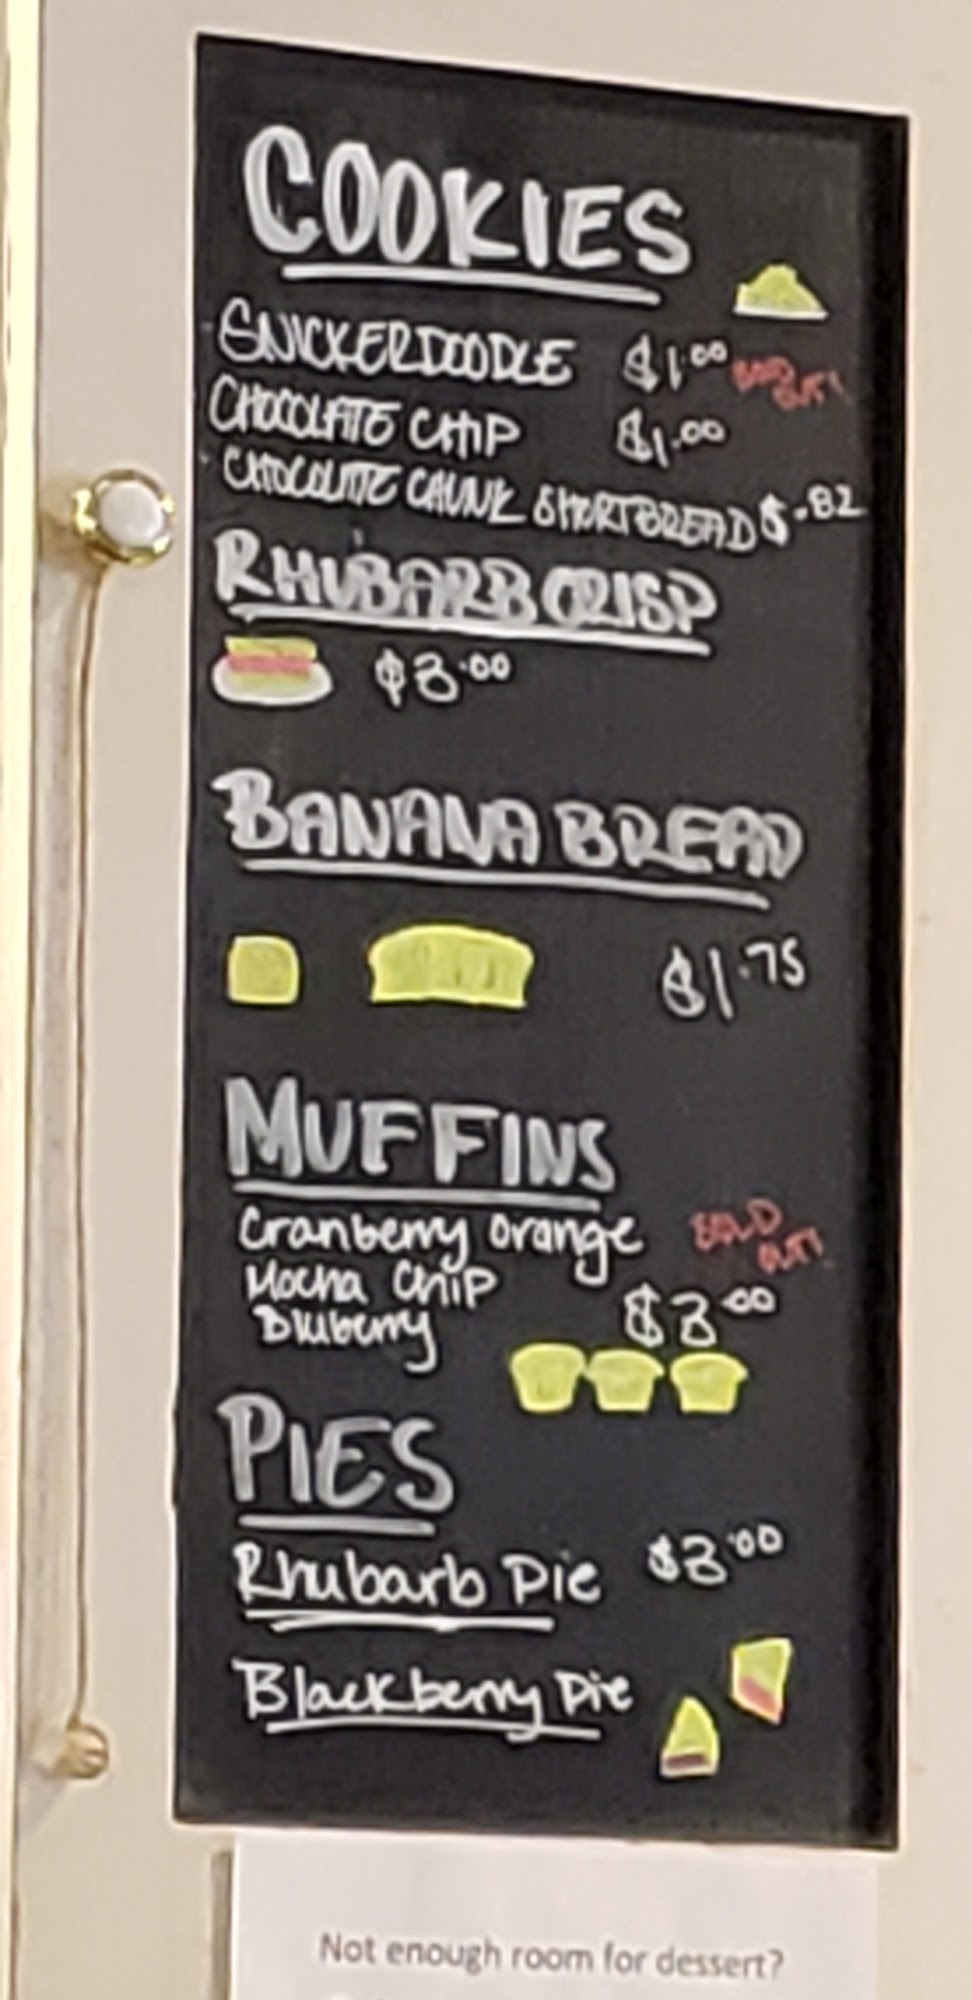 COOKIES
SNICKERDOODLE $1.00 SOLD OUT!
CHOCOLATE CHIP $1.00
CHOCOLATE CHUNK SHORTBREAD $.82
RHUBARB CRISP
$3.00
BANANA BREAD
$1.75
MUFFINS
Cranberry Orange SOLD OUT!
Mocha Chip $3.00
Bluberry
PIES
Rhubarb Pie $3.00
Blackberry Pie
Not enough room for dessert?